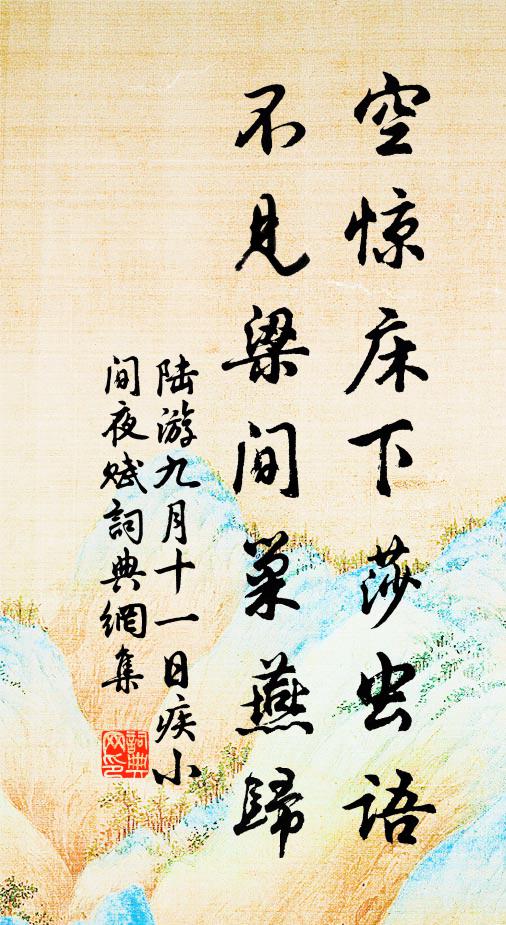 空惊床下莎虫语
不见梁间巢燕歸
陆游九月十一日疾小
间夜赋詞典網集
詞典
网印